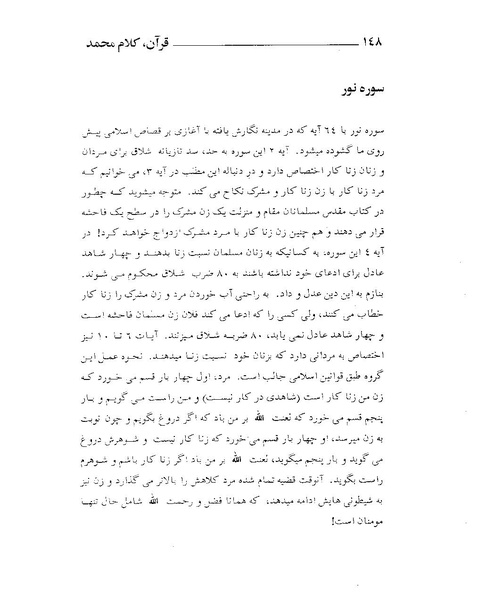 ١٤٨ قرآن، کلام محمد
سوره نور
سوره نور با ٦٤ آیه که در مدینه نگارش یافته با آغازی بر قصاص اسلامی پیش
روی ما گشوده میشود. آیه ٢ این سوره به حد، صد تازیانه شلاق برای مردان
و زنان زنا کار اختصاص دارد و در دنباله این مطلب در آیه ٣، می خوانیم که
مرد زنا کار با زن زنا کار و مشرک نکاح می کند. متوجه میشوید که چطور
در کتاب مقدس مسلمانان مقام و منزلت یک زن مشرک را در سطح یک فاحشه
قرار می دهند و هم چنین زن زنا کار با مرد مشرک ازدواج خواهد کرد! در
آیه ٤ این سوره، به کسانیکه به زنان مسلمان نسبت زنا بدهند و چهار شاهد
عادل برای ادعای خود نداشته باشند به ٨٠ ضرب شلاق محکوم می شوند.
بنازم به این دین عدل و داد. به راحتی آب خوردن مرد و زن مشرک را زنا کار
خطاب می کنند، ولی کسی را که ادعا می کند فلان زن مسلمان فاحشه است
و چهار شاهد عادل نمی یابد، ٨٠ ضربه شلاق میزنند. آیات ٦ تا ١٠ نیز
اختصاص به مردانی دارد که بزنان خود نسبت زنا میدهند. نحوه عمل این
گروه طبق قوانین اسلامی جالب است. مرد، اول چهار بار قسم می خورد که
زن من زنا کار است (شاهدی در کار نیست) و من راست می گویم و بار
پنجم قسم می خورد که لعنت الله بر من باد که اگر دروغ بگویم و چون نوبت
به زن میرسد، او چهار بار قسم می‌خورد که زنا کار نیست و شوهرش دروغ
می گوید و بار پنجم میگوید، لعنت الله بر من باد اگر زنا کار باشم و شوهرم
راست بگوید. آنوقت قضیه تمام شده مرد کلاهش را بالاتر می گذارد و زن نیز
به شیطونی هایش ادامه میدهد، که همانا فضل و رحمت الله شامل حال تنها
مومنان است!